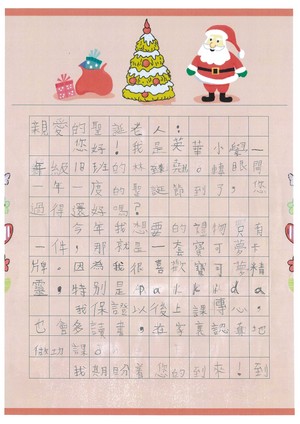 親愛的聖誕老人：
您好！我是芙華小學一
年級18班的林翾。轉眼間
一年一度的聖誕節到了，您
過得還好嗎？
今年我想要的禮物只有
一件，那就是一套寶可夢卡
牌。因為我很喜歡寶可夢精
靈，特別是palkida
我保證以後上課專心，
也會多讀書，在家裏認真地
做功課。
我期盼着您的到來！到